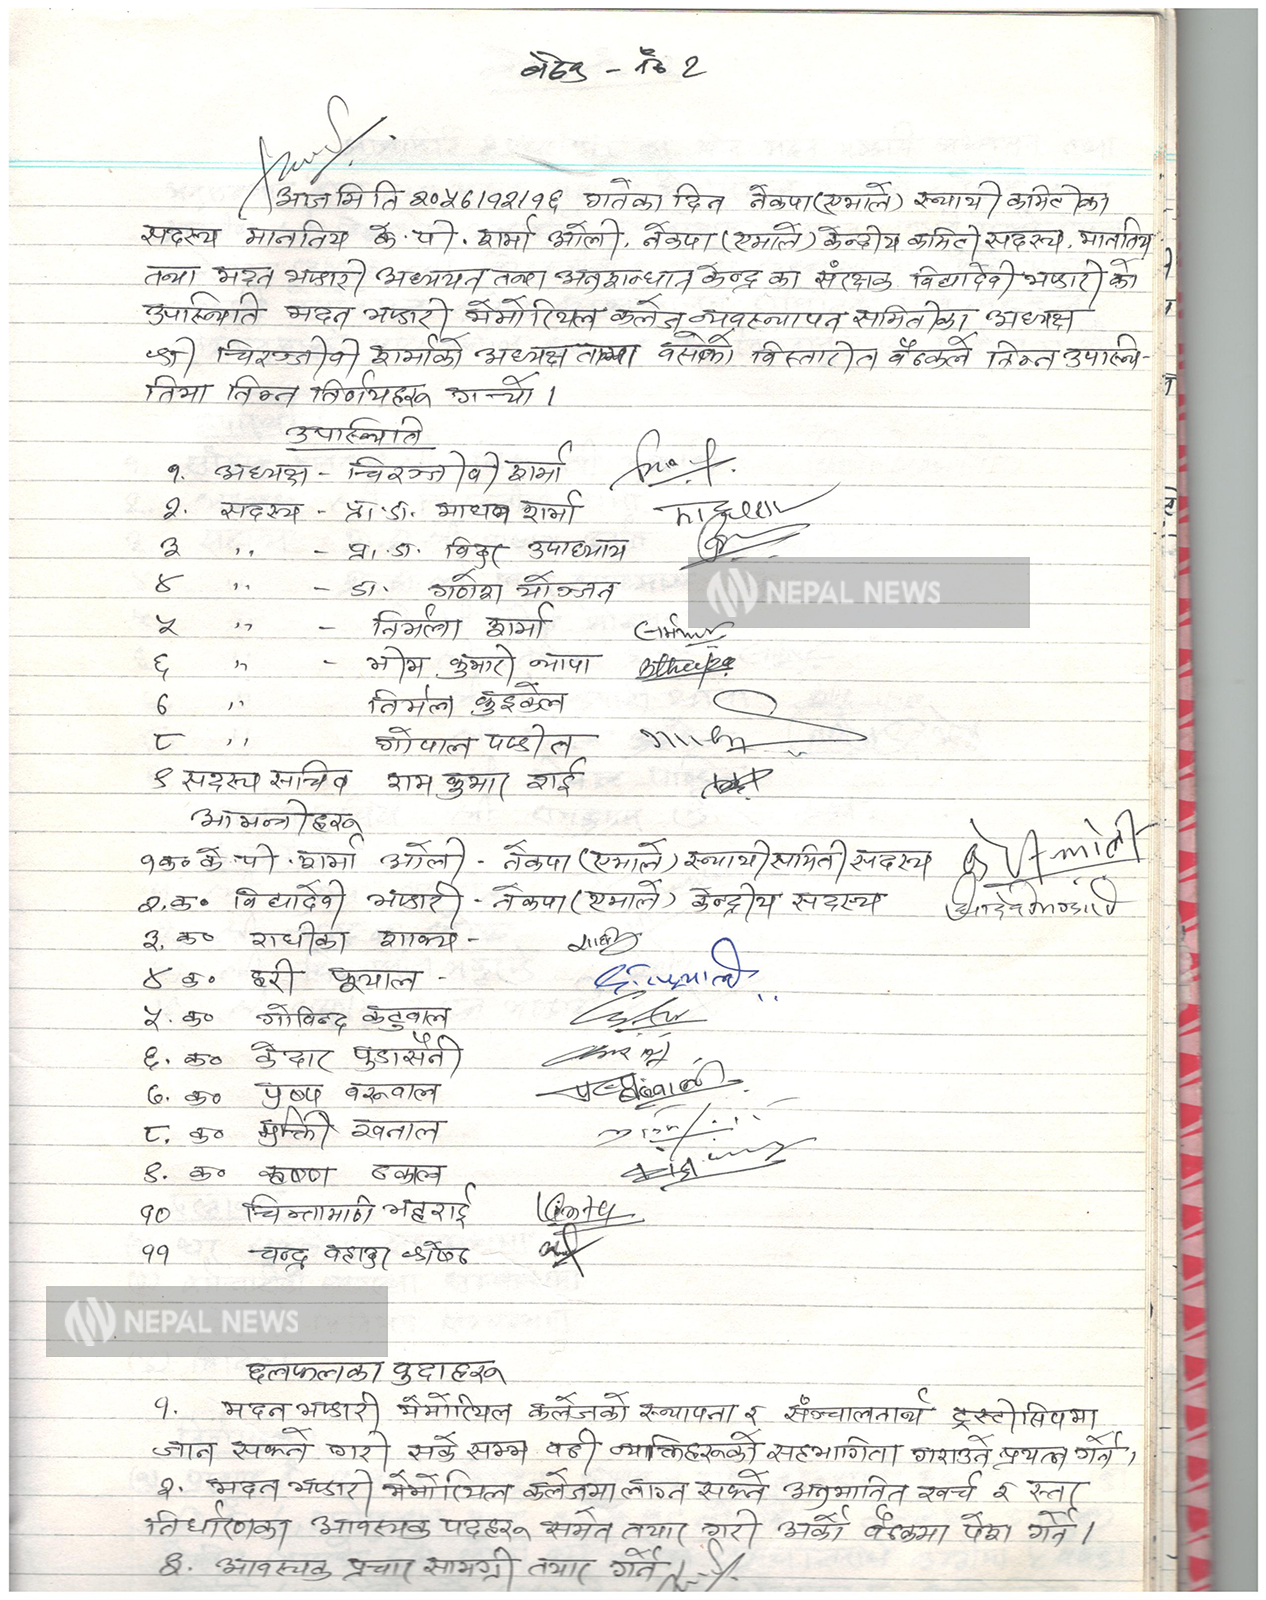 बैठक - नं २
आज मिति २०५७/१२/१६ गतेका दिन नेकपा (एमाले) स्थायी कमिटीका
सदस्य माननिय के. पी. शर्मा ओली, नेकपा (एमाले) केन्द्रीय कमिटी सदस्य, माननिय
तथा मदन भण्डारी अध्ययन तथा अनुशन्धान केन्द्र का संरक्षक विद्यादेवी भण्डारी को
उपास्थिति मदन भण्डारी मेमोरियल कलेज व्यवस्थापन समितीका अध्यक्ष
श्री चिरञ्जीवी शर्माको अध्यक्ष तामा वसेको विस्तारीत बैठकले निम्न उपास्थि-
तिमा निम्न निर्णयहरू गर्‍यो ।
उपास्थिति
१. अध्यक्ष - चिरञ्जीवी शर्मा
२. सदस्य - प्रा. डा. माधव शर्मा
३ ,, - प्रा. डा. विदुर उपाध्याय
४ ,, - डा. गणेश योञ्जन
NEPAL NEWS
५ ,, - निर्मला शर्मा
६ ,, - भीम कुमारी थापा
७ ,, निर्मल कुइकेल
८ ,, गोपाल पण्डीत
९ सदस्य सचिव राम कुमार राई
आमन्त्रीहरू
१ क० के. पी. शर्मा ओली - नेकपा (एमाले) स्थायी समिती सदस्य
२. क० विद्यादेवी भण्डारी - नेकपा (एमाले) केन्द्रीय सदस्य
३. क० राधीका शाक्य -
४ क० हरी फूयाल -
५. क० गोविन्द कटुवाल
६. क० केदार पुडासैनी
७. क० पुष्प वरूवाल
८. क० मुक्ति खनाल
९. क० कृष्ण ढकाल
१० चिन्तामणी भट्टराई
११ चन्द्र वहादुर श्रेष्ठ
NEPAL NEWS
छलफलका वुदाहरू
१. मदन भण्डारी मेमोरियल कलेजको स्थापना र संञ्चालनार्थ ट्रस्टीसिपमा
जान सक्ने गरी सके सम्म वढी व्याक्तिहरूको सहभागिता गराउने प्रयत्न गर्ने ।
२. मदन भण्डारी मेमोरियल कलेजमा लाग्न सक्ने अनुमानित खर्च र स्तर
निर्धारणका आवस्यक पदहरू समेत तयार गरी अर्को बैठकमा पेश गर्ने ।
३. आवस्यक प्रचार सामग्री तयार गर्ने ।